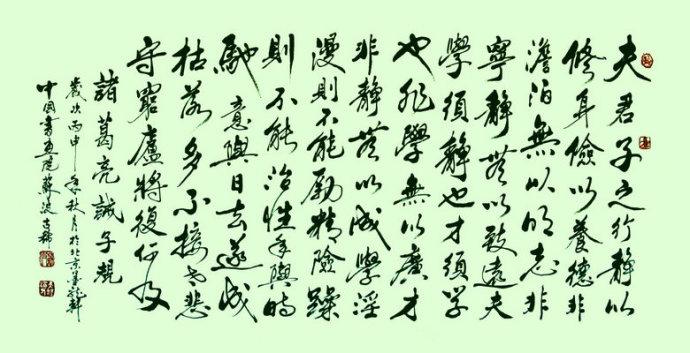 夫君子之行靜以
修身儉以養德非
澹泊無以明志非
寧靜無以致遠夫
學須靜也才須学
也非學無以廣才
非靜無以成學淫
漫則不能勵精險躁
則不能治性年與時
馳意與日去遂成
枯落多不接世悲
守窮廬將復何及
諸葛亮誡子
歲次丙申年秋月於北京墨龍軒
中国書画院蘇